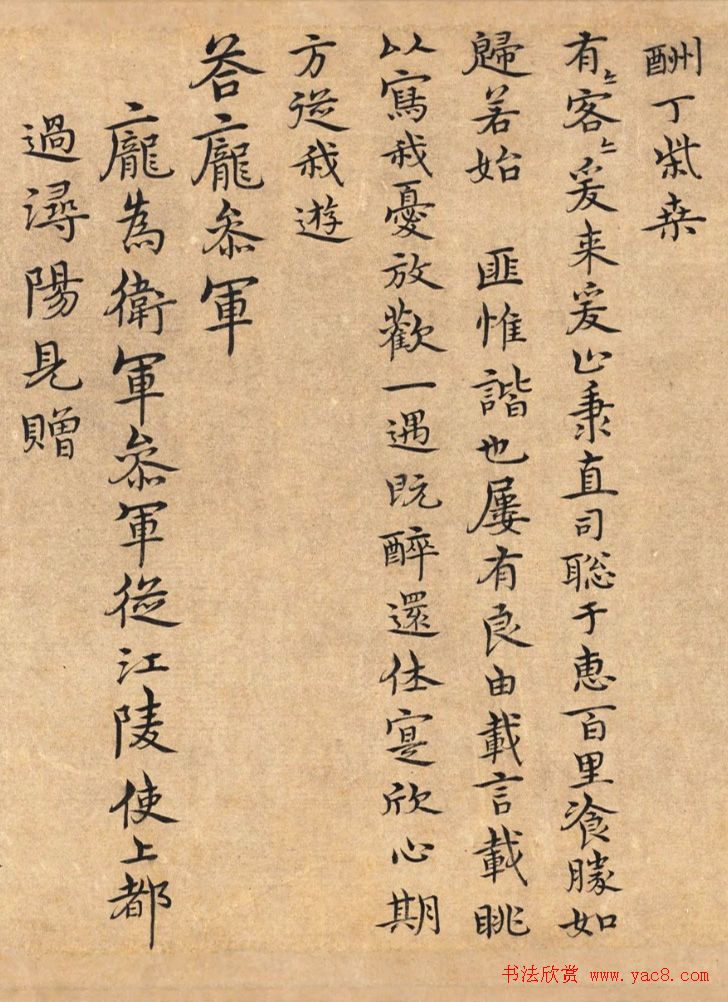 酬丁柴桒
有〻客〻爰来爰止秉直司聡于惠百里飡勝如
歸若始　匪惟諧也屢有良由載言載眺
以寫我憂放歡一遇既醉還休寔欣心期
方從我遊
荅龐參軍
龐為衛軍參軍從江陵使上都
過潯陽見贈
书法欣赏 www.yac8.com